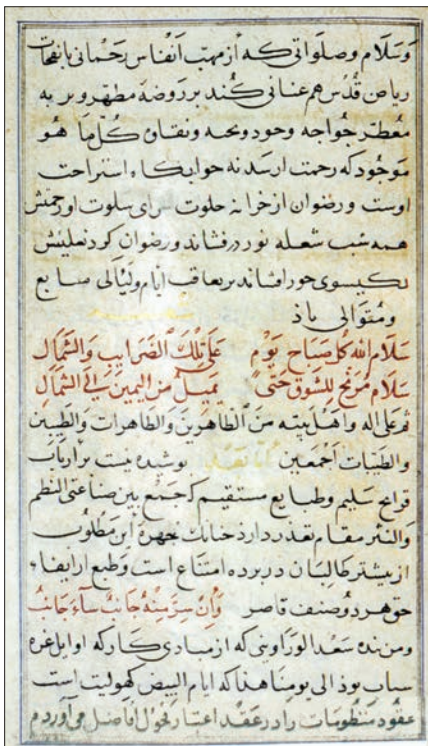 وَسَلام وصلواتی که از مهبّ انفاس رَحمانی با نفحات
ریاض قُدس هم عنانی کُند بر روضهٔ مطهّر و تربه
معطّر خواجه وجود و نقاوه کُلّ ما هُو
مَوجُود که رحمت از سدنه خوابگاه استراحت
اوست و رضوان از خزانه خلوت سرای سلوت او رحمتش
همه شب شعله نور درفشاند و رضوان گرد نعلینش
بگیسوی حور افشاند بر تعاقب ایام ولیالی متتابع
و مُتوالی باذ
سَلامُ الله کُلّ صباح یَومٍ علی تلک الضّرایب والشّمالِ
سَلام مُرنّح للشوق حَتّی یمیل من الیمین الی الشمالِ
ثم علی اله و اهل بیته من الطاهرین والطاهرات والطیبین
والطیبات اجمعین امّا بَعد پوشیده نیست بر ارباب
قرایح سلیم و طبایع مستقیم که جمع بین صناعتی النظم
والنثر مقام تعذر دارد چنانک چهره این مطلوب
از بیشتر طالبان در پرده امتناع است و طبع از ایفاء
حق هر دو صنف قاصر وَان سرّ منهُ جانبٌ ساءَ جانبُ
و من بنده سَعد الوَراوینی که از مبادی کار که اوایل غره
شباب بوذ الی یومنا هذا که ایام البیض کهولیت است
عقود منظومات را در عقد اعتبار فحول افاضل می‌آوردم